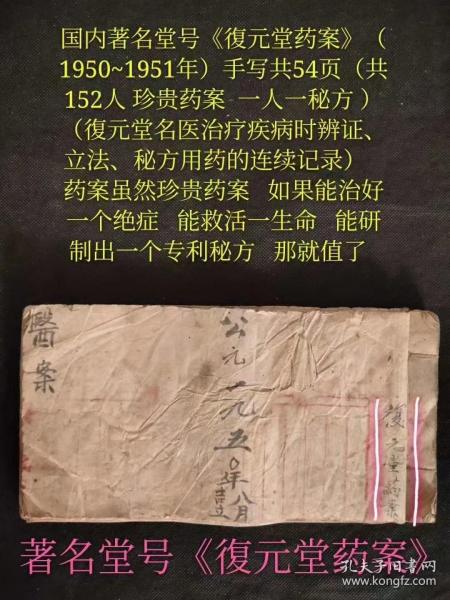 国内著名堂号《復元堂药案》（
1950~1951年）手写共54页（共
152人 珍贵药案 一人一秘方 ）
（復元堂名医治疗疾病时辨证、
立法、秘方用药的连续记录）
药案虽然珍贵药案 如果能治好
一个绝症 能救活一生命 能研
制出一个专利秘方 那就值了
醫案
公元一九五0年八月
復元堂药案
著名堂号《復元堂药案》
孔夫子旧书网
www.kongfz.com